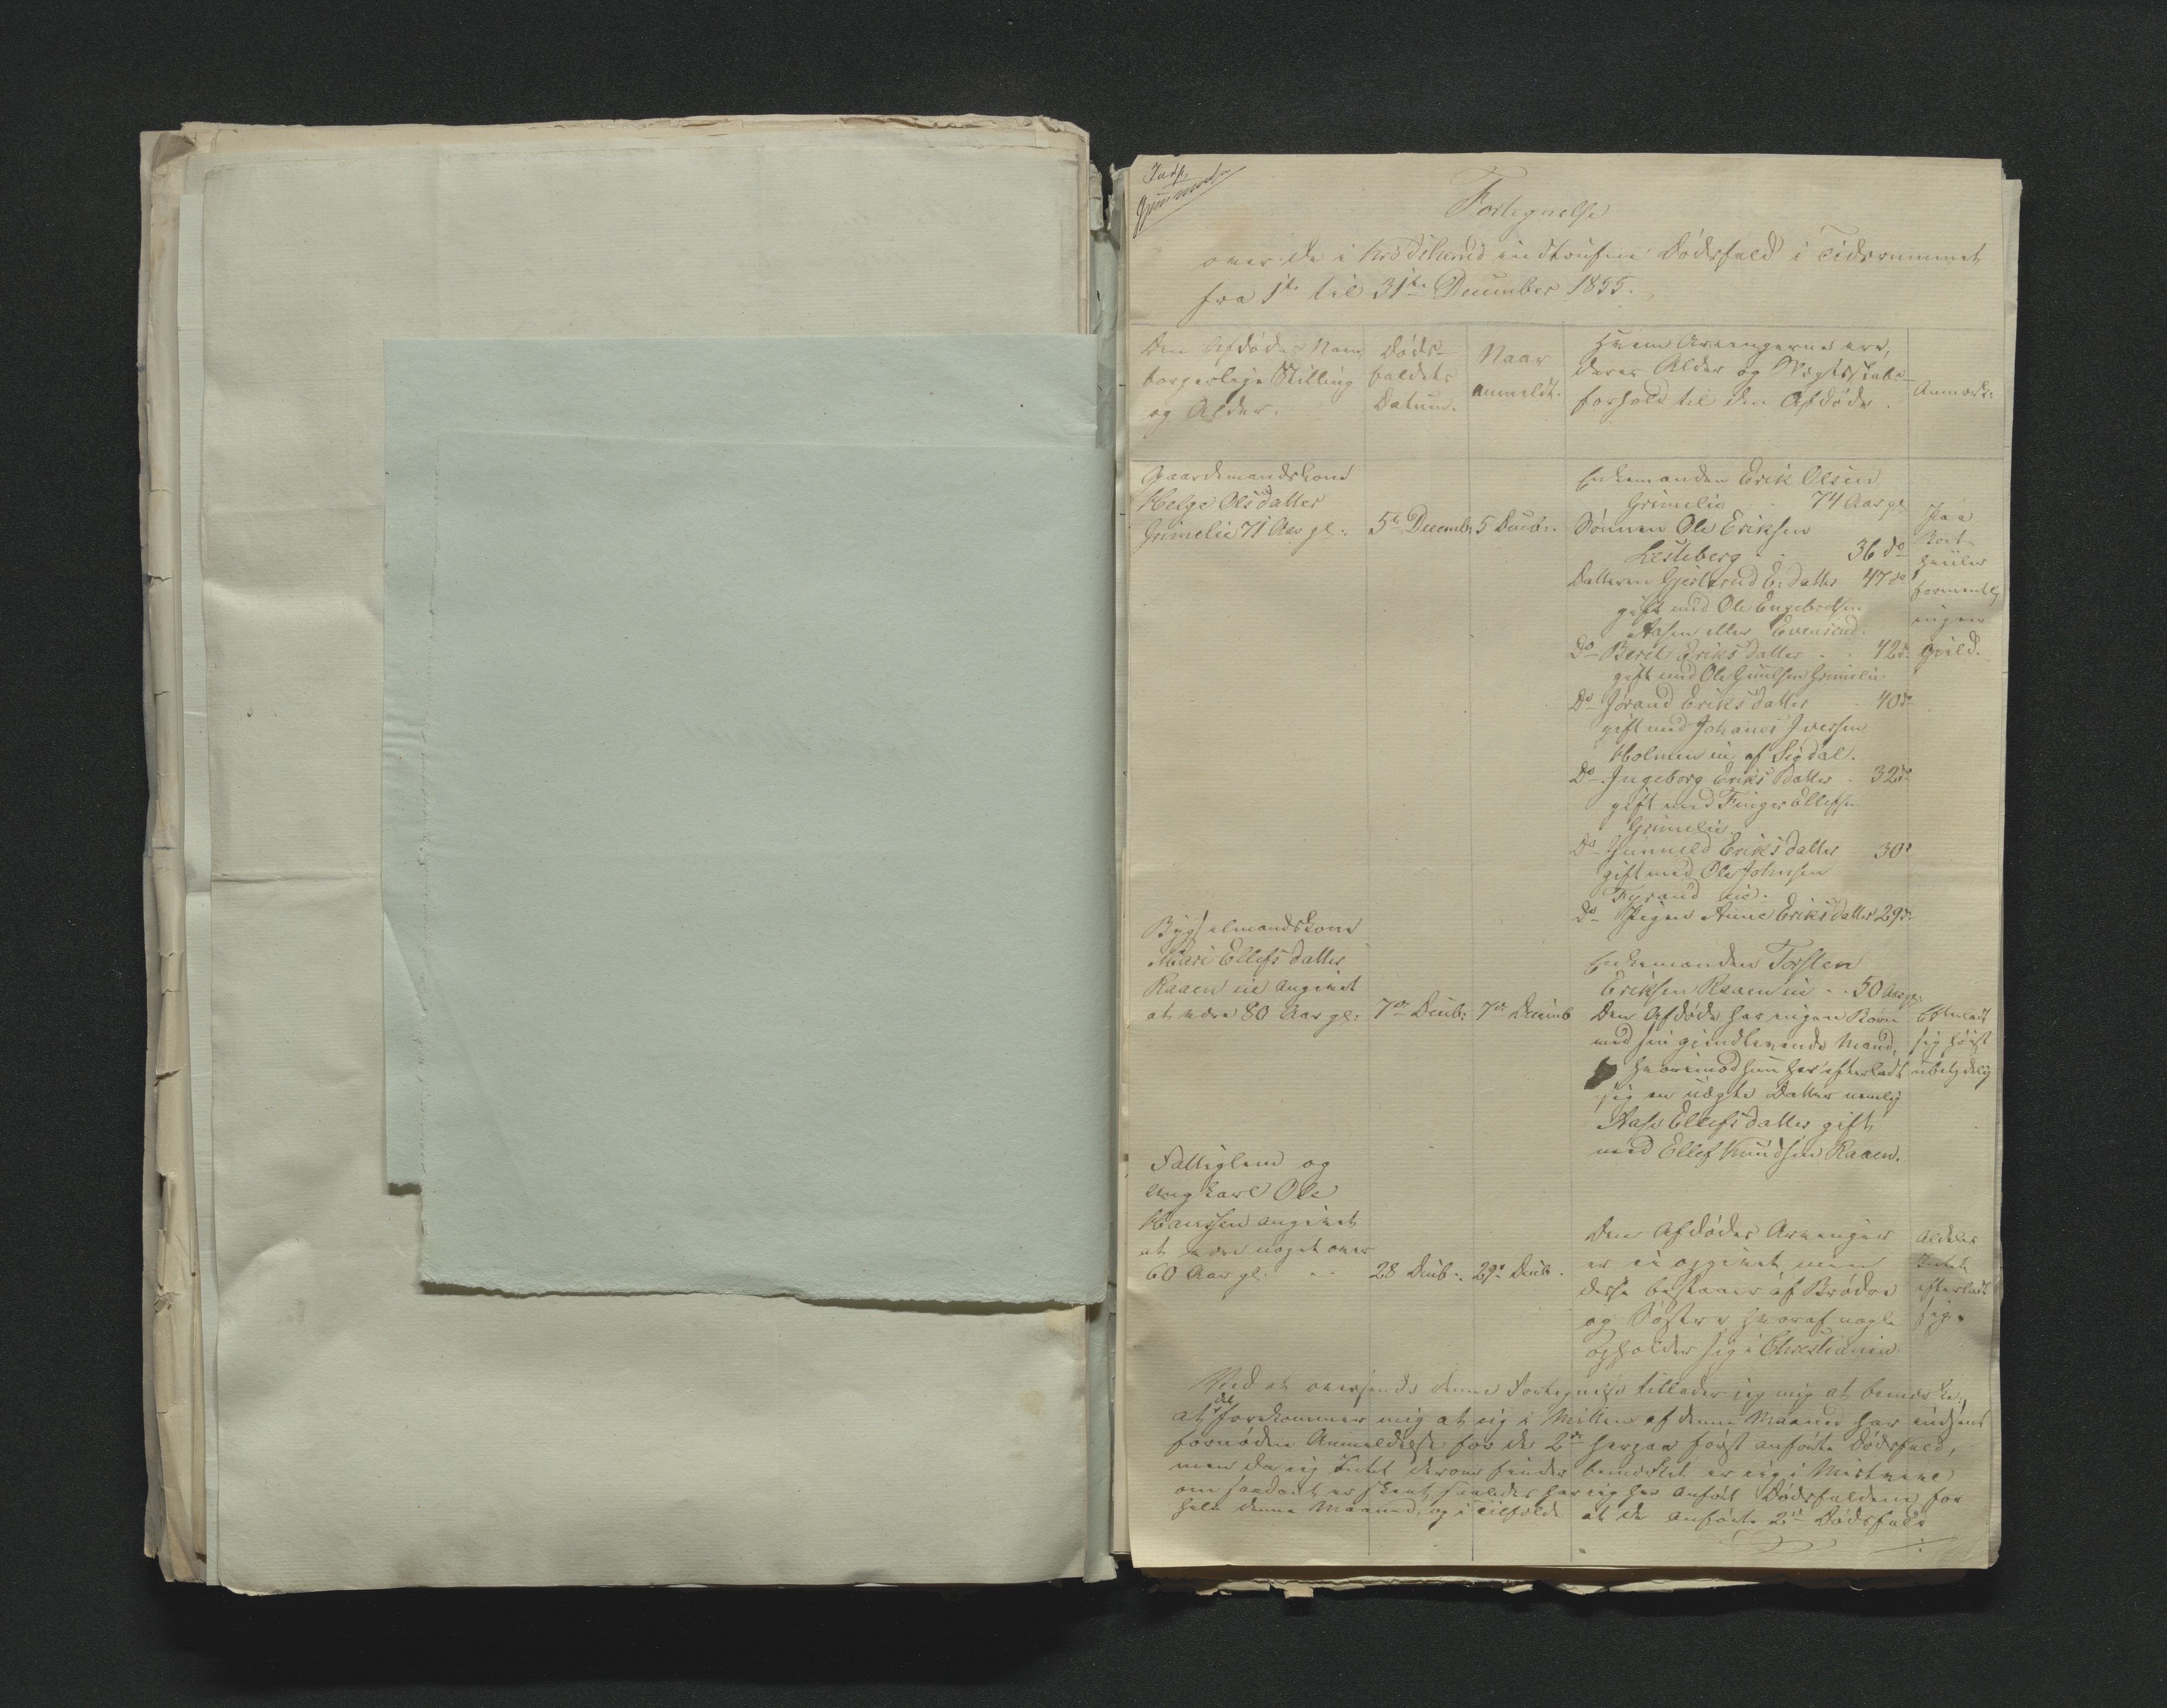 Indf.
Fortegnelse
over de i Krödsherred indtrufne Dødsfald i Tidsrummet
fra 1ste til 31te December 1855.
Den Afdødes Navn,
borgerlige Stilling
og Alder.
Døds-
faldets
Datum.
Naar
anmeldt.
Hvem Arvingerne ere,
deres Alder og Slægtskabs-
forhold til den Afdøde.
Anmærk:
Gaardmandskone
Helge Olsdatter
Grimelie 71 Aar gl:
5te Decemb:
5 Decb:
Enkemanden Erik Olsen
Grimelie 74 Aar gl
Sønnen Ole Eriksen
Lesteberg 36 do
Datteren Gjertrud E: datter 47 do
gift med Ole Engebretsen
Aasen eller Evensrud.
Do Berit Eriksdatter 42 do
gift med Ole Gulliksen Grimelie
Do Jørand Eriksdatter 40 do
gift med Johanes Iversen
Holmen eie af Sigdal.
Do Ingeborg Eriksdatter 32 do
gift med Finger Ellefsen
Grimelie.
Do Gunnild Eriksdatter 30 do
gift med Ole Johnsen
Fyrand eie.
Do Pigen Anne Eriksdatter 29 do
Paa
Boet
hviler
formentlig
ingen
Gjæld.
Bygselmandskone
Mari Ellefsdatter
Raaen eie angivet
at være 80 Aar gl:
7de Decb:
7de Decemb
Enkemanden Torsten
Eriksen Raaen eie 50 Aar gl:
Den Afdøde har ingen Børn
med sin gjenlevende Mand,
hvorimod hun har efterladt
sig en uægte Datter nemlig
Aase Ellefsdatter gift
med Ellef Knudsen Raaen.
Efterladt
sig høist
ubetydelig
Fattiglem og
Ungkarl Ole
Hanssen angivet
at være noget over
60 Aar gl:
28 Decb:
29de Decb.
Den Afdødes Arvinger
er ei opgivet, men
disse bestaaer af Brødre
og Søstre hvoraf nogle
opholder sig i Christiania
Aldeles
Intet
efterladt
sig.
Ved at oversende denne Fortegnelse tillader jeg mig at bemærke,
at det forekommer mig at jeg i Midten af denne Maaned har indsendt
fornøden Anmeldelse for de 2de herpaa først anførte Dødsfald,
men da jeg Intet derom finder bemærket er jeg i Mistvivl
om saadant er skeet, saaledes har jeg her anført Dødsfaldene for
hele denne Maaned, og i Tilfælde at de anførte 2de Dødsfald